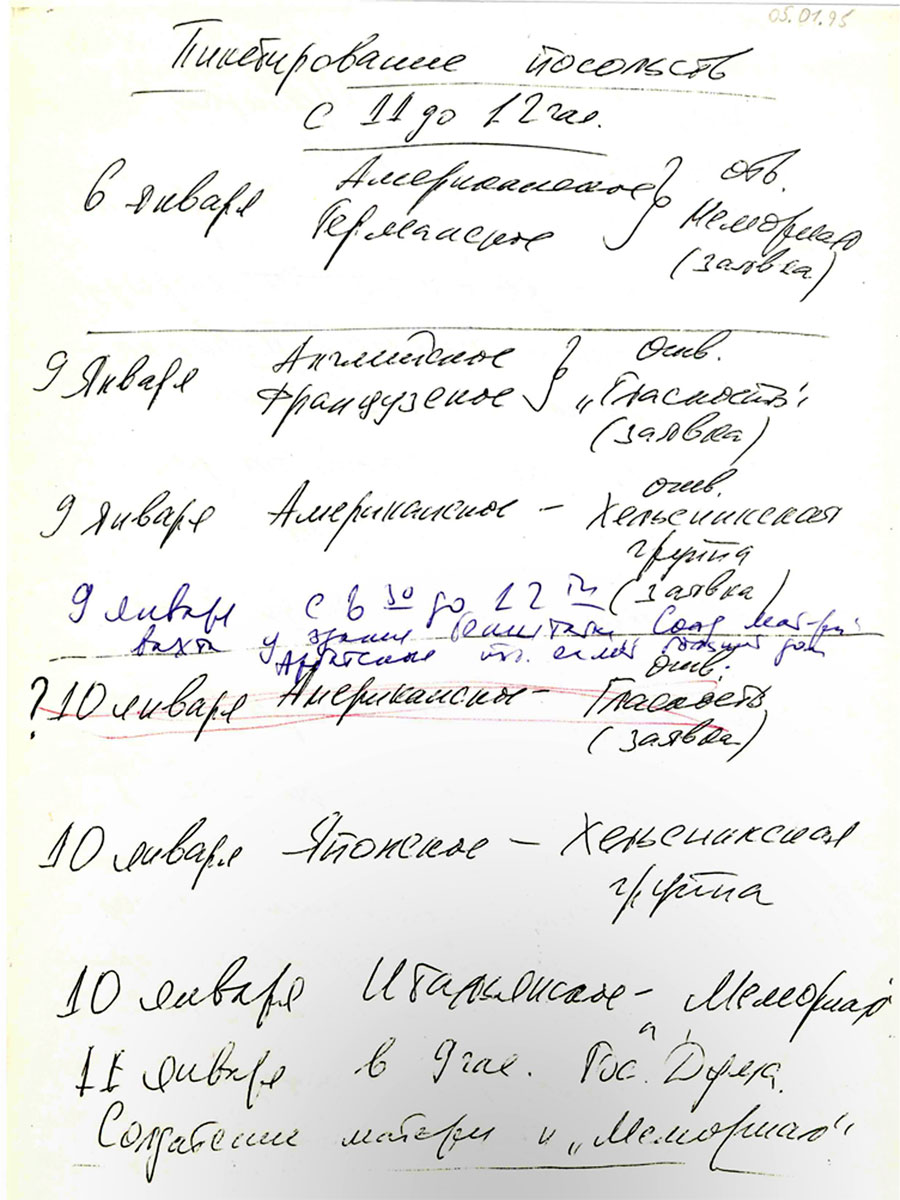 05.01.95
Пикетирование посольств
с 11 до 12 час.
6 января Американское } отв.
Германское Мемориал
(заявка)
9 Января Английское } Отв.
Французское „Гласность"
(заявка)
отв.
9 января Американское – Хельсинкская
группа
(заявка)
9 января с 8 30 до 12
вахта у здания Солд. мат-ри
Арбатская
Отв.
? 10 января Американское – Гласность
(заявка)
10 января Японское – Хельсинкская
группа
10 января Итальянское – Мемориал
11 января в 9 час. Гос. Дума
Солдатские матери и „Мемориал"